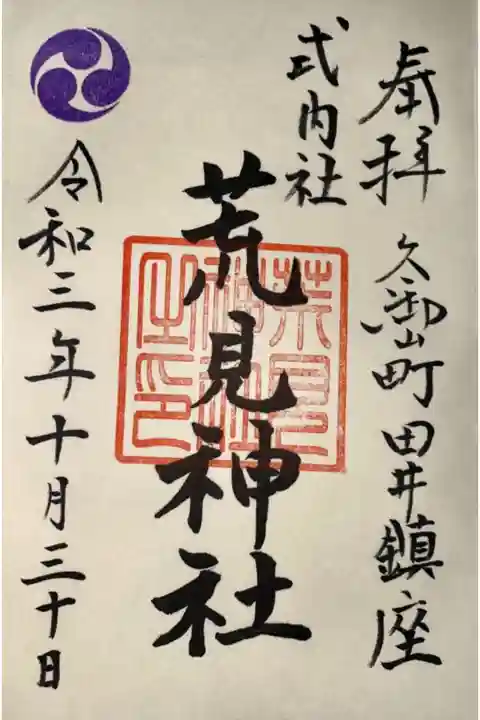 奉拝
久御山町田井鎮座
式内社
荒見神社
荒見神社之印
令和三年十月三十日